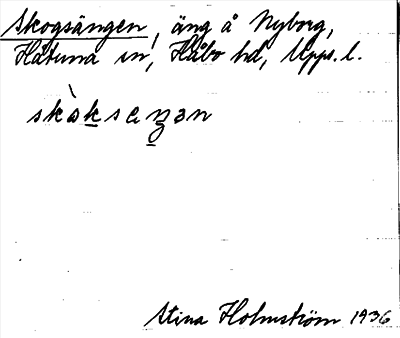 Skogsängen, äng å Nyborg,
Håtuna sn, Håbo hd, Upps. l.
skòksεŋən
Stina Holmström 1936